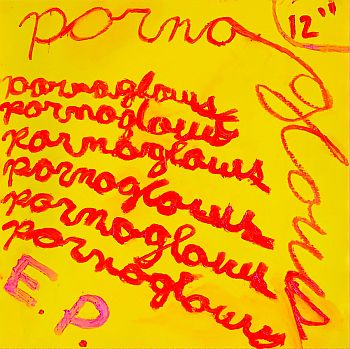 porno
12"
glows
pornoglows
pornoglows
pornoglows
pornoglows
pornoglows
pornoglows
E.P.